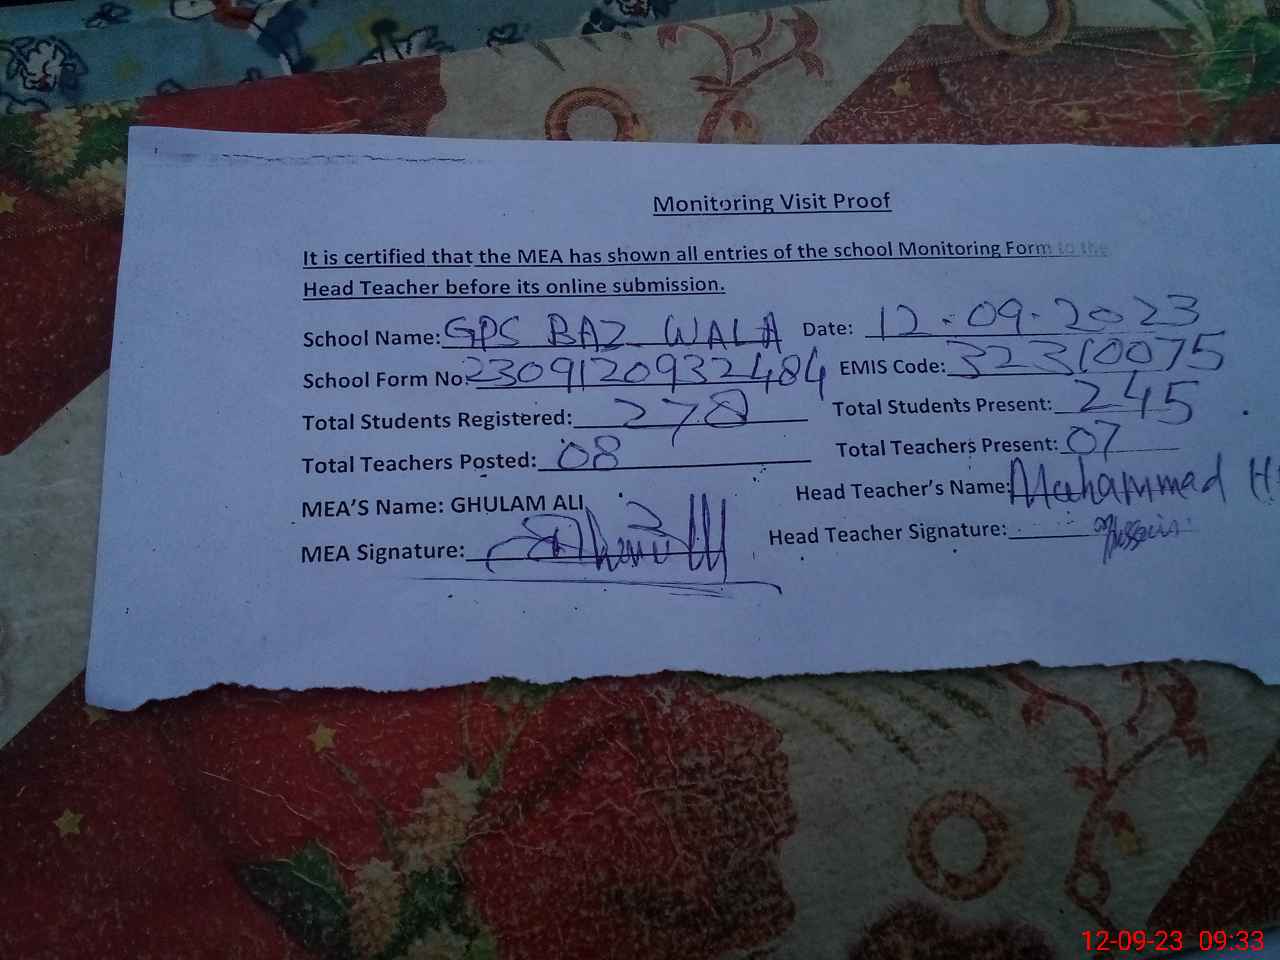 Monitoring Visit Proof
It is certified that the MEA has shown all entries of the school Monitoring Form to the
Head Teacher before its online submission.
School Name: GPS BAZ WALA Date: 12-09-2023
School Form No: 2309120932484 EMIS Code: 32310075
Total Students Registered: 278 Total Students Present: 245
Total Teachers Posted: 08 Total Teachers Present: 07
MEA'S Name: GHULAM ALI Head Teacher's Name: Muhammad
MEA Signature: Head Teacher Signature: Hussain
12-09-23 09:33